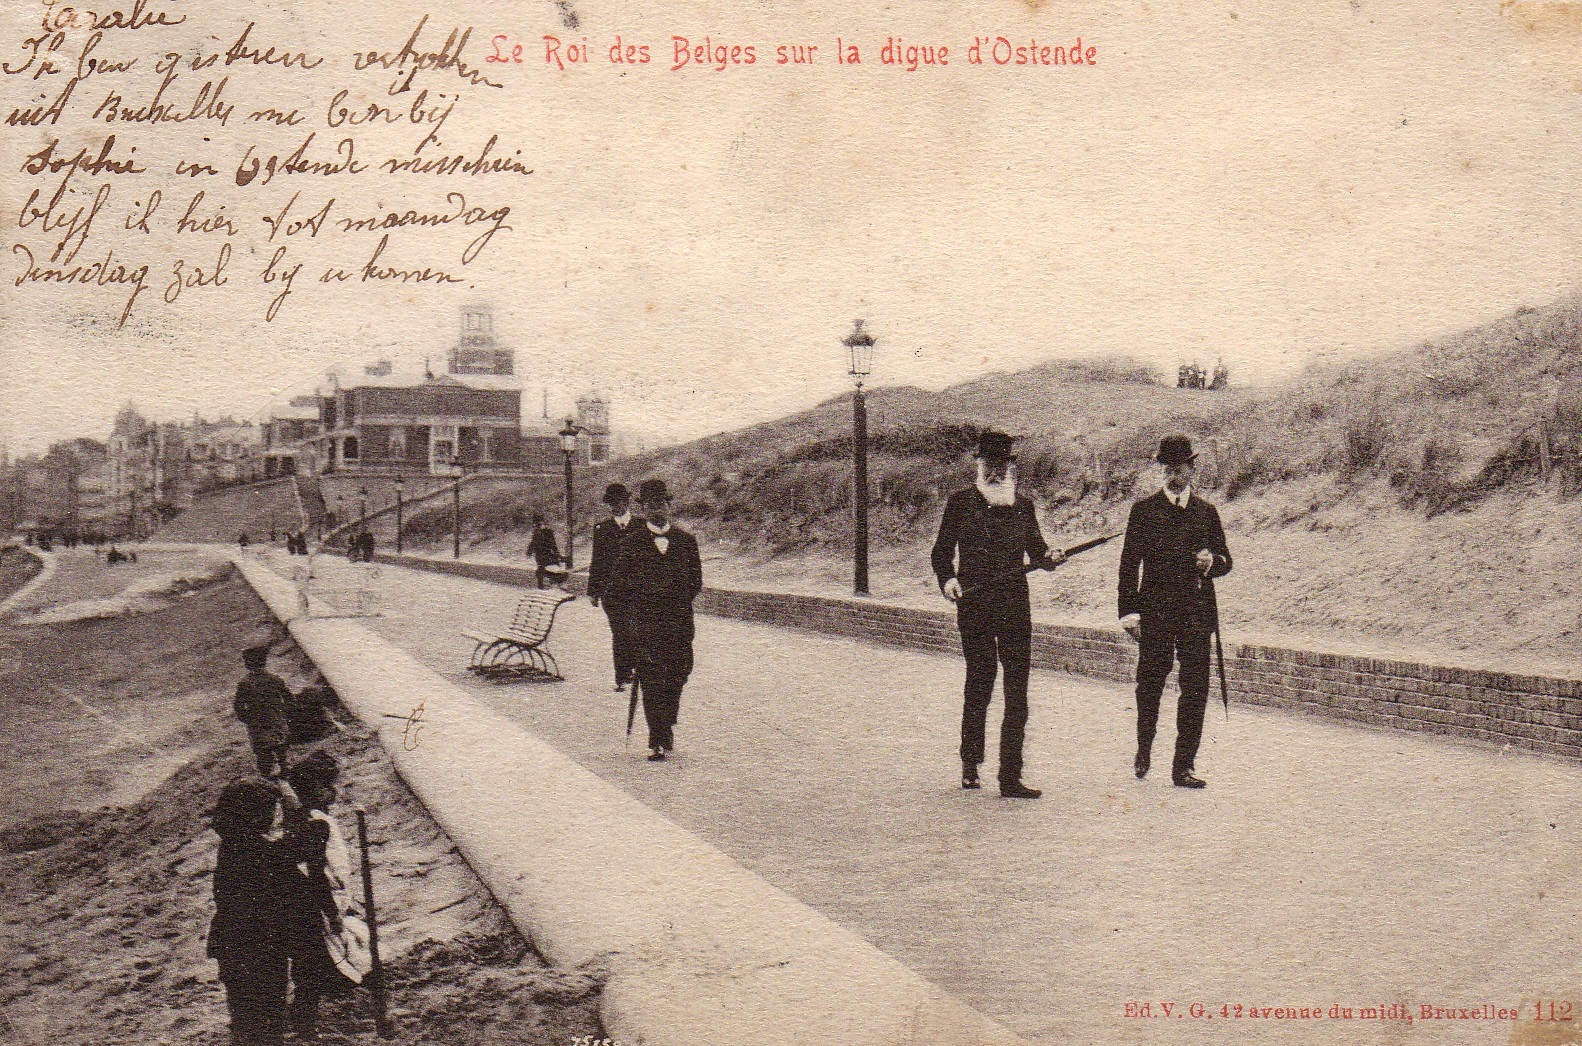 Ik ben gisteren vertrokken
uit Bruxelles me ben bij
Sophie in Ostende misschein
blijf ik hier tot maandag
dinsdag zal bij u komen.
Le Roi des Belges sur la digue d'Ostende
Ed. V. G. 42 avenue du midi, Bruxelles 112